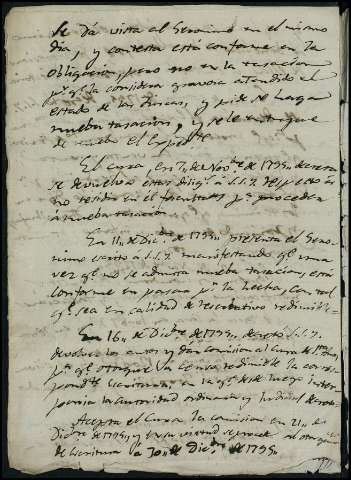 Se dá vista al Geronimo en el mismo
dia, y contesta está conforme en la
Obligacion, pero no en la tasacion
pr. qe. la considera gravosa atendido el
estado de las fincas, y pide se haga
nueba tasacion, y se le entregue
de nuebo el Expedte.
El Cura, en de Novbre. de 1795 decreta
se debuelvan estas dilig.s á S.S.Y. respecto á
no residir en el facultads. pa. proceder
á nueba tasacion
En 11 de Dicbre. de 1795 presenta el Gero-
nimo escrito á S.S.Y. manifestando qe. una
vez qe. no se admita nueba tasacion, está
conforme en pasar pr. la hecha, con tal
qe. sea en calidad de redimible
En 16 de Dicbre. de 1795 decretó S.S.Y.
devolver los autos y dar comision al Cura de
pa. qe. otorgue la censa redimible la corres-
pondte. Escritura, en la qe. desde luego inter-
ponia la autoridad ordinaria y Judicial
Acepta el Cura la comision en 21 de
Dicbre. de 1795 y en su virtud se procede al
de Escritura á 30 de Dicbre. de 1795